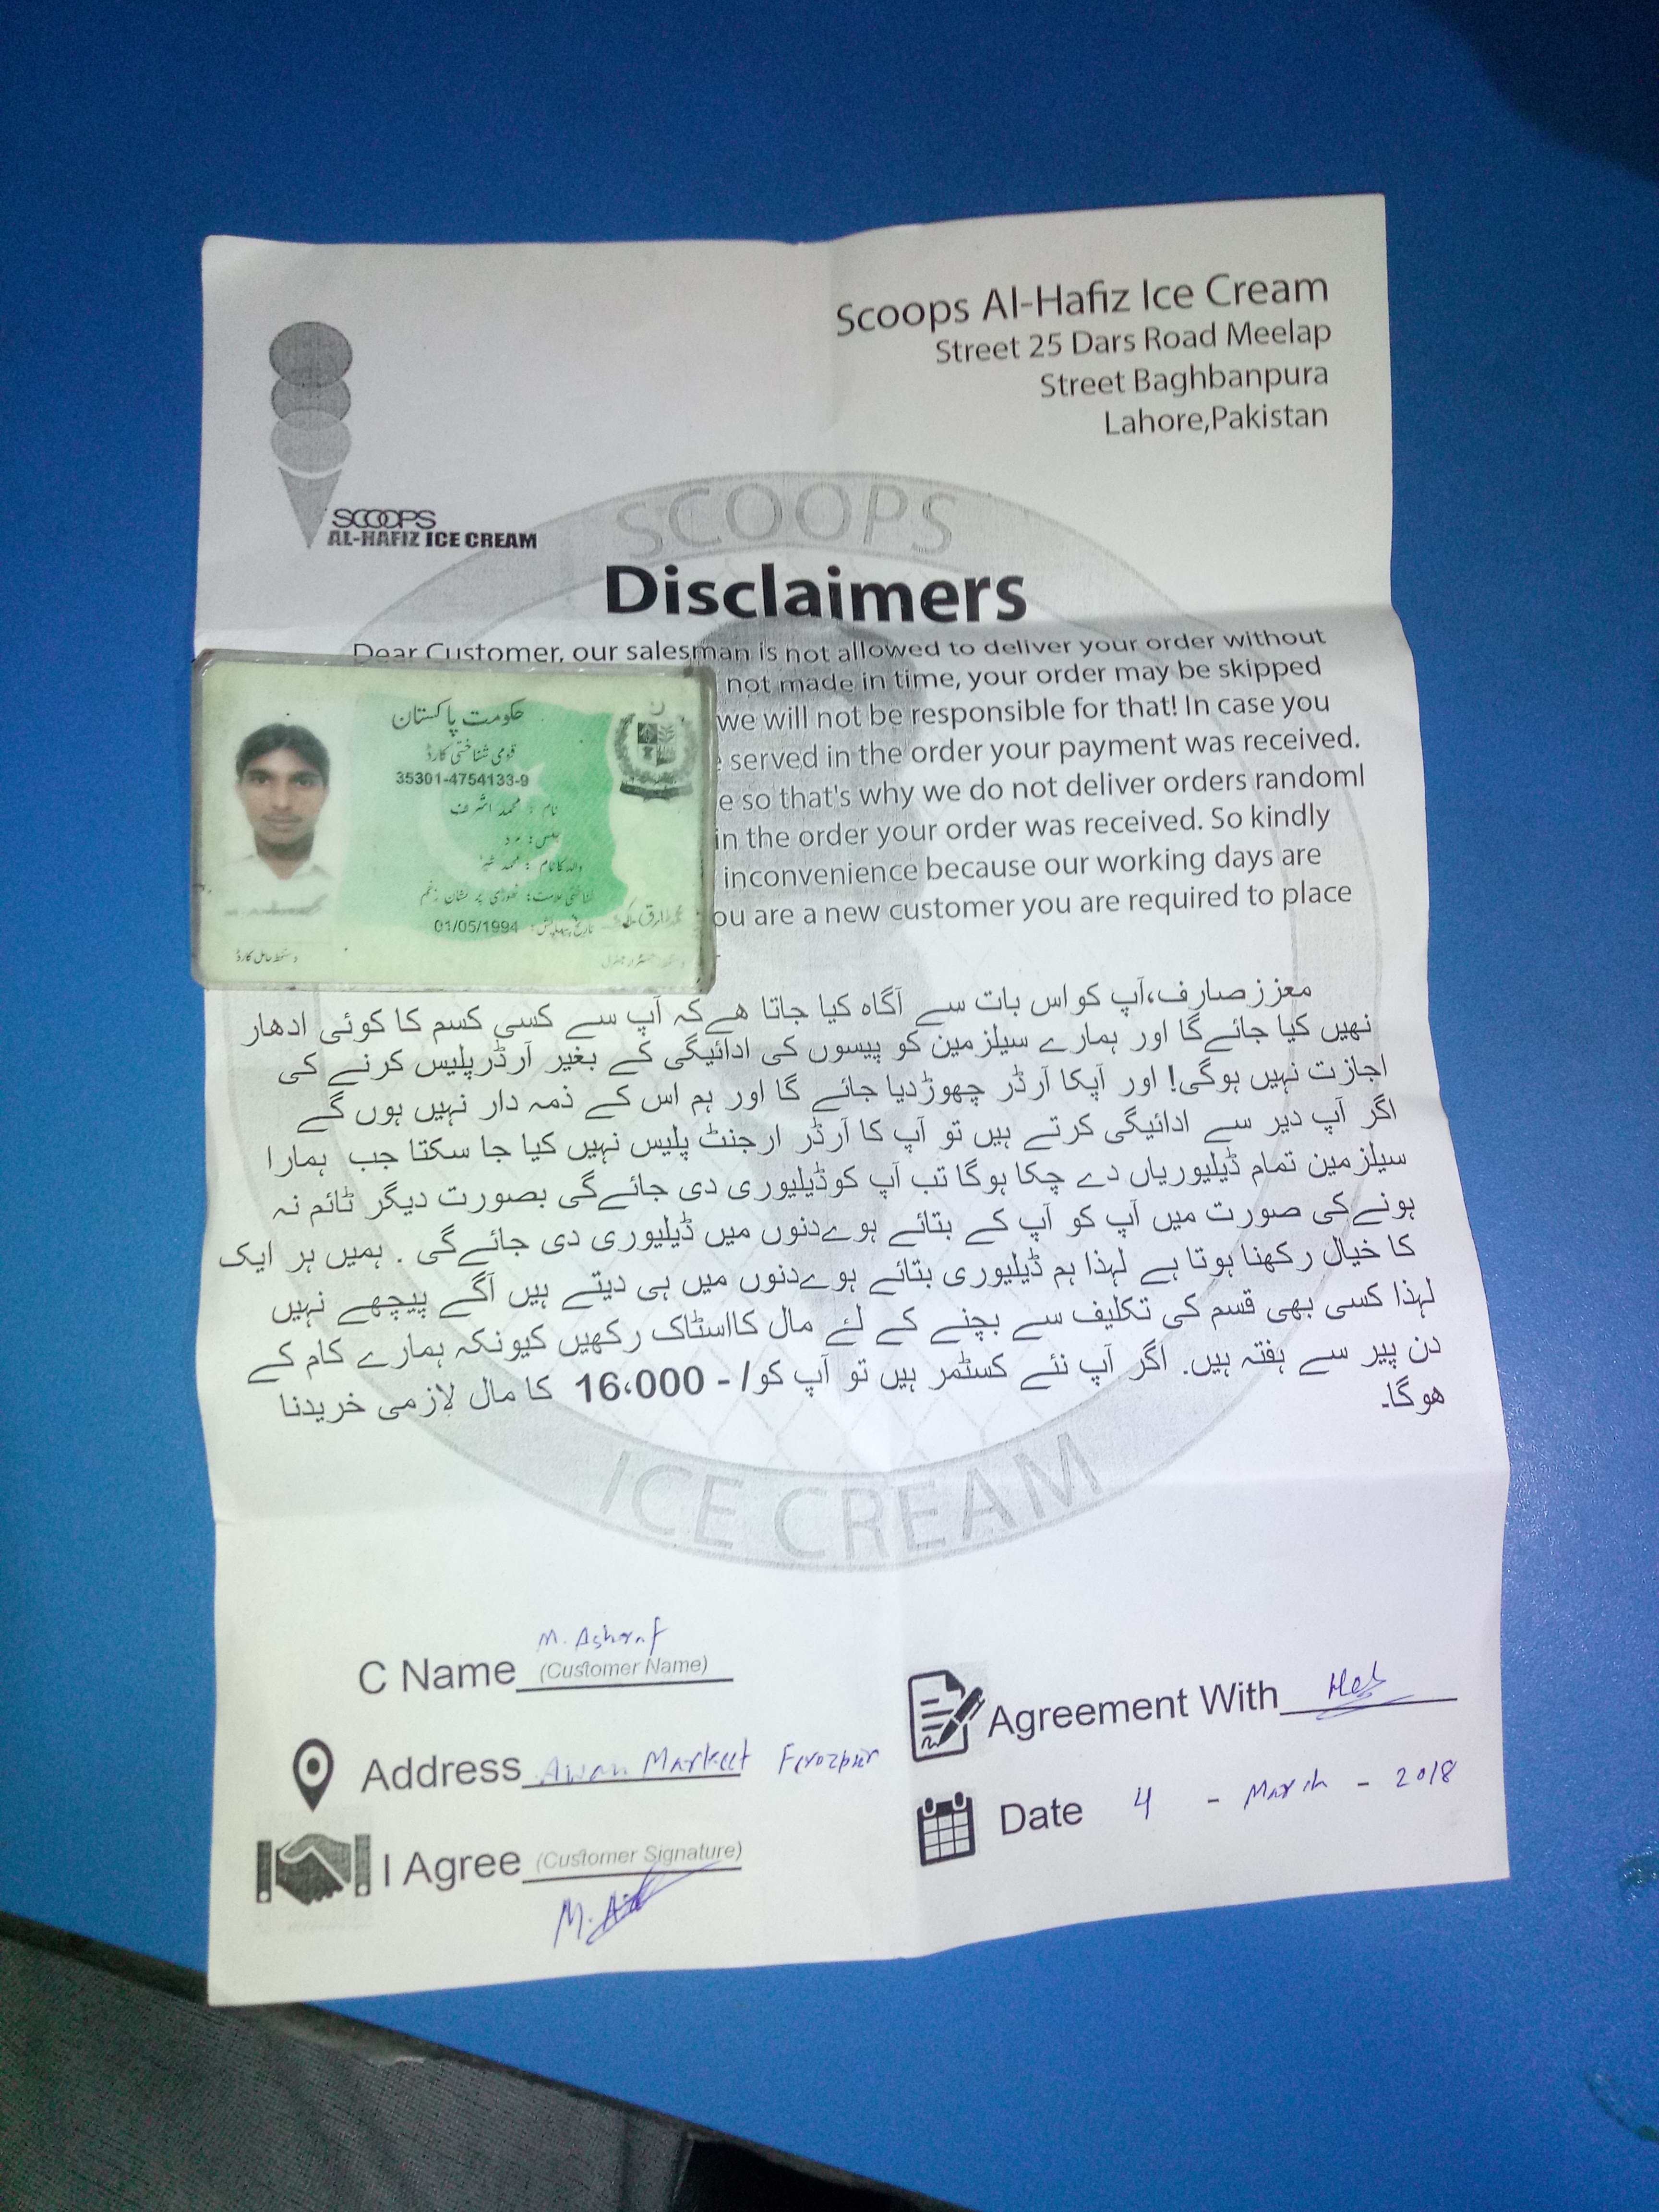 Scoops Al-Hafiz Ice Cream
Street 25 Dars Road Meelap
Street Baghbanpura
Lahore,Pakistan
SCOOPS
AL-HAFIZ ICE CREAM
SCOOPS
Disclaimers
Dear Customer, our salesman is not allowed to deliver your order without
not made in time, your order may be skipped
we will not be responsible for that! In case you
served in the order your payment was received.
e so that's why we do not deliver orders randoml
in the order your order was received. So kindly
inconvenience because our working days are
ou are a new customer you are required to place
حکومت پاکستان
قومی شناختی کارڈ
35301-4754133-9
نام : محمد اشرف
جنس: مرد
والد کا نام : محمد
شناختی علامت: ٹھوڑی پر نشان زخم
تاریخ پیدائش: 01/05/1994
دستخط حامل کارڈ
معزز صارف،آپ کو اس بات سے آگاہ کیا جاتا ھے کہ آپ سے کسی کسم کا کوئی ادھار
نھیں کیا جائے گا اور ہمارے سیلزمین کو پیسوں کی ادائیگی کے بغیر آرڈرپلیس کرنے کی
اجازت نہیں ہوگی! اور آپکا آرڈر چھوڑدیا جائے گا اور ہم اس کے ذمہ دار نہیں ہوں گے
اگر آپ دیر سے ادائیگی کرتے ہیں تو آپ کا آرڈر ارجنٹ پلیس نہیں کیا جا سکتا جب ہمارا
سیلزمین تمام ڈیلیوریاں دے چکا ہوگا تب آپ کوڈیلیوری دی جائےگی بصورت دیگر ٹائم نہ
ہونےکی صورت میں آپ کو آپ کے بتائے ہوےدنوں میں ڈیلیوری دی جائےگی . ہمیں ہر ایک
کا خیال رکھنا ہوتا ہے لہذا ہم ڈیلیوری بتائے ہوےدنوں میں ہی دیتے ہیں آگے پیچھے نہیں
لہذا کسی بھی قسم کی تکلیف سے بچنے کے لئے مال کااسٹاک رکھیں کیونکہ ہمارے کام کے
دن پیر سے ہفتہ ہیں. اگر آپ نئے کسٹمر ہیں تو آپ کو/- 16،000 کا مال لازمی خریدنا
ھوگا۔
ICE CREAM
C Name M. Ashraf
(Customer Name)
Agreement With
Address Awan Markeet Ferozpur
Date 4 - March - 2018
I Agree (Customer Signature)